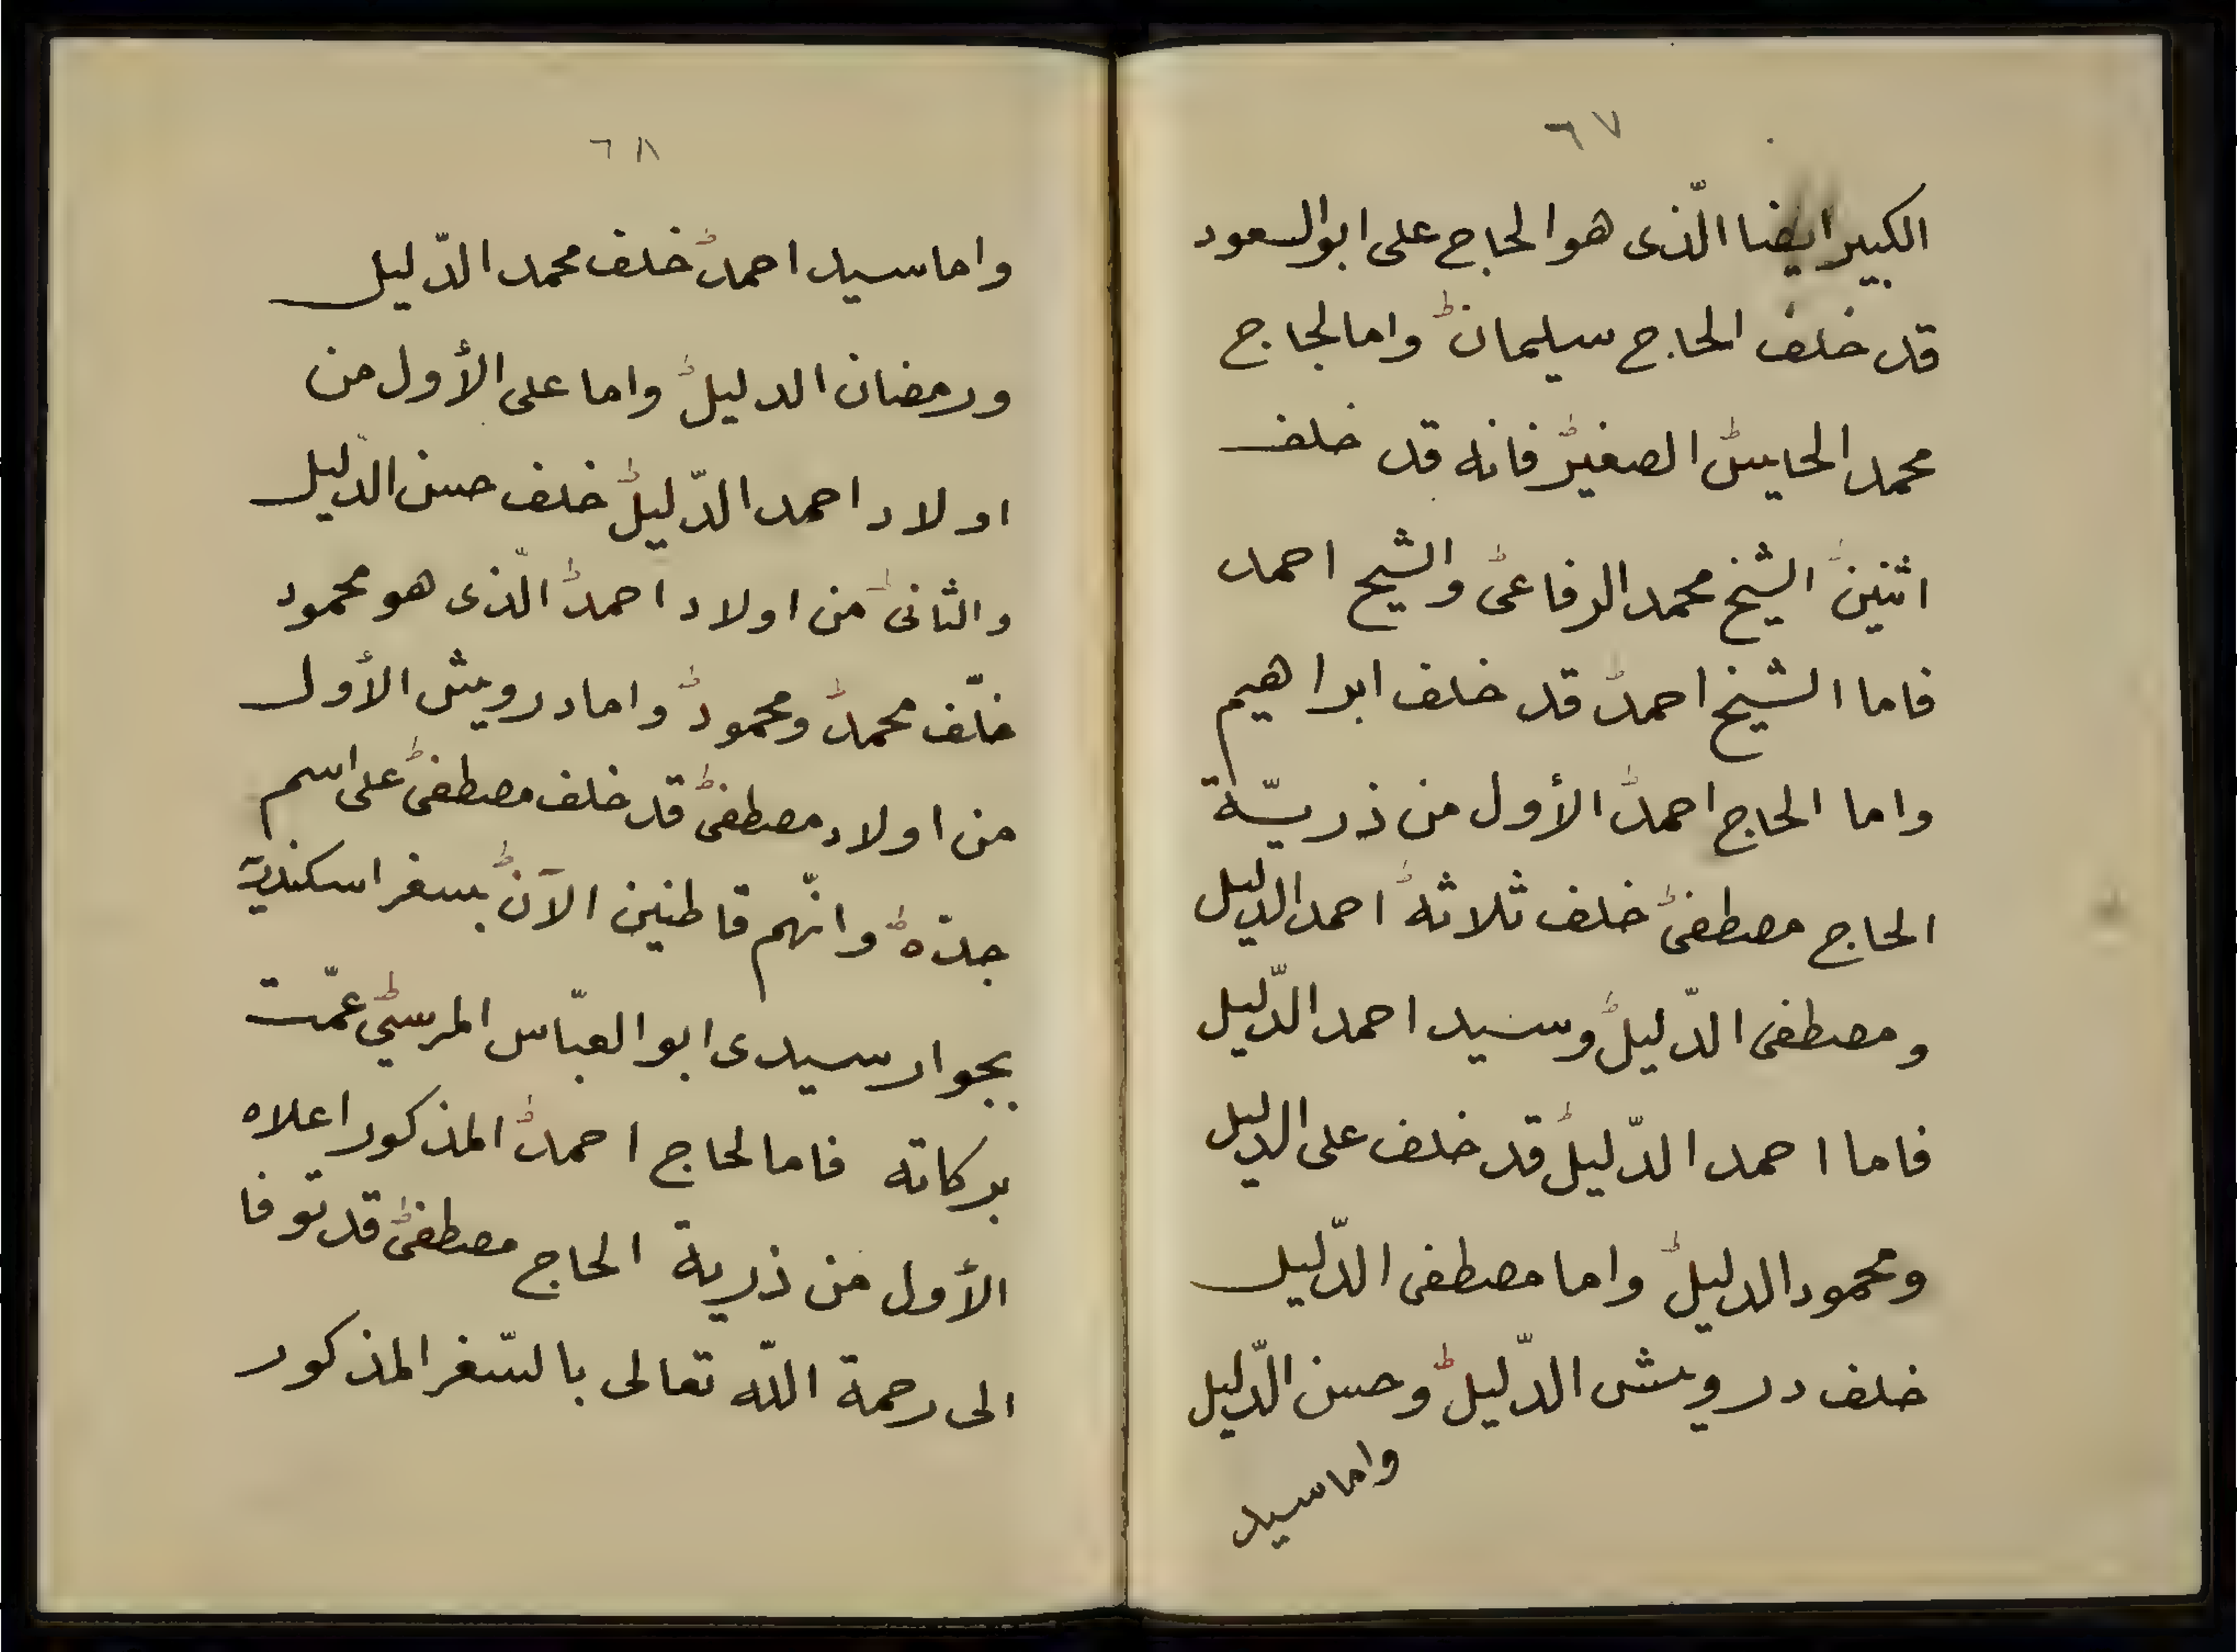 ٦٧
الكبير ايضا الّذى هو الحاج على ابو السعود
قد خلف الحاج سليمان ط واما لحاج
محمد الحايس ط الصغير ط فانه قد خلف
اثنين ط الشيخ محمد الرفاعى ط والشيخ احمد
فاما الشيخ احمد ط قد خلف ابراهيم
واما الحاج احمد ط الأول من ذريّة
الحاج مصطفى ط خلف ثلاثة ط احمد الدليل
ومصطفى الدّليل ط وسيد احمد الدّليل
فاما احمد الدّليل ط قد خلف على الدليل
ومحمود الدليل ط واما مصطفى الدّليل
خلف درويش الدّليل ط وحسن الدّليل
واما سيد
٦٨
واما سيد احمد ط خلف محمد الدّليل
ورمضان الدليل ط واما على الأول من
اولاد احمد الدّليل ط خلف حسن الدّليل
والثانى ط من اولاد احمد ط الّذى هو محمود
خلّف محمد ط ومحمود ط واما درويش الأول
من اولاد مصطفى ط قد خلف مصطفى ط على اسم
جدّه ط وانّهم قاطنين الآن ط بسغر اسكندرية
بجوار سيدى ابو العبّاس المرسي ط عمّت
بركاته فاما لحاج احمد ط المذكور اعلاه
الأول من ذرية الحاج مصطفى ط قد توفا
الى رحمة اللّه تعالى بالسّغر المذكور